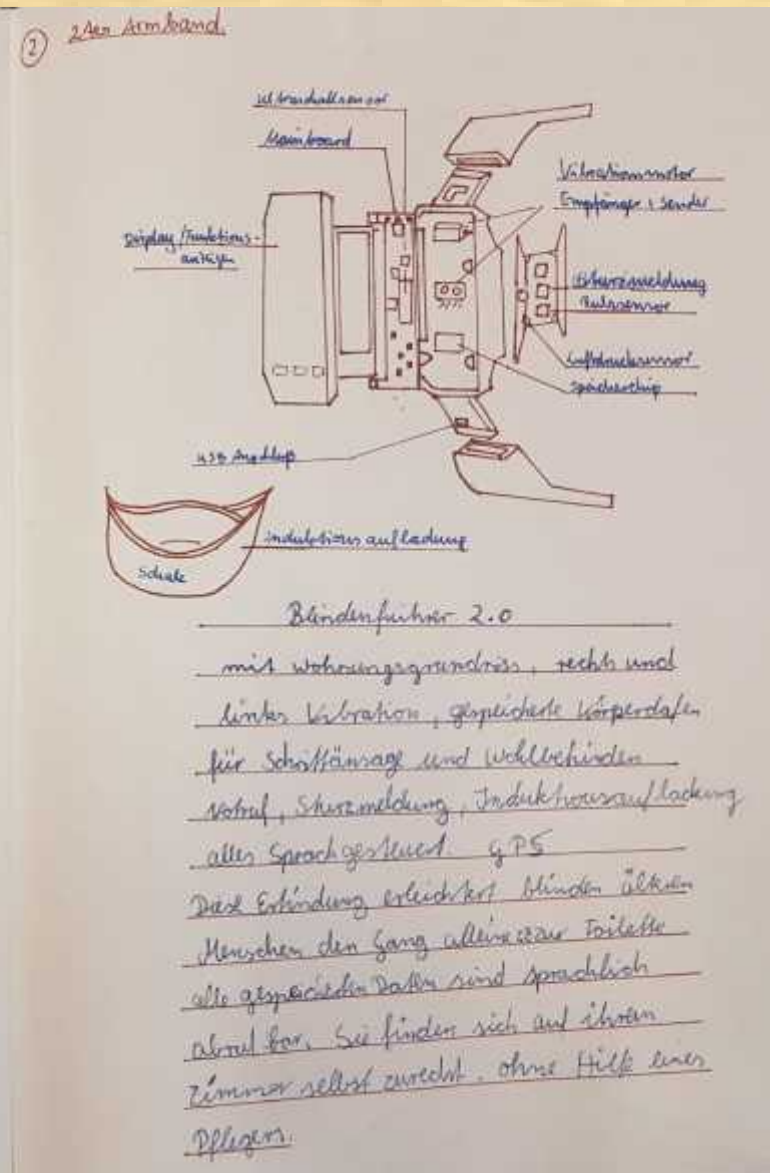 2
2ter Armband
Ultraschallsensor
Mainboard
Display/Funktions-
anzeigen
Vibrationsmotor
Empfänger, Sender
Sturzmeldung
Pulssensor
Luftdrucksensor
Speicherchip
USB Anschluß
Induktionsaufladung
Schale
Blindenführer 2.0
mit Wohnungsgrundriss, rechts und
links Vibration, gespeicherte Körperdaten
für Schrittansage und Wohlbefinden
Notruf, Sturzmeldung, Induktionsaufladung
alles Sprachgesteuert. GPS
Diese Erfindung erleichtert blinden älteren
Menschen den Gang alleine zur Toilette
alle gespeicherten Daten sind sprachlich
abrufbar. Sie finden sich auf ihren
Zimmer selbst zurecht. ohne Hilfe eines
Pflegers.